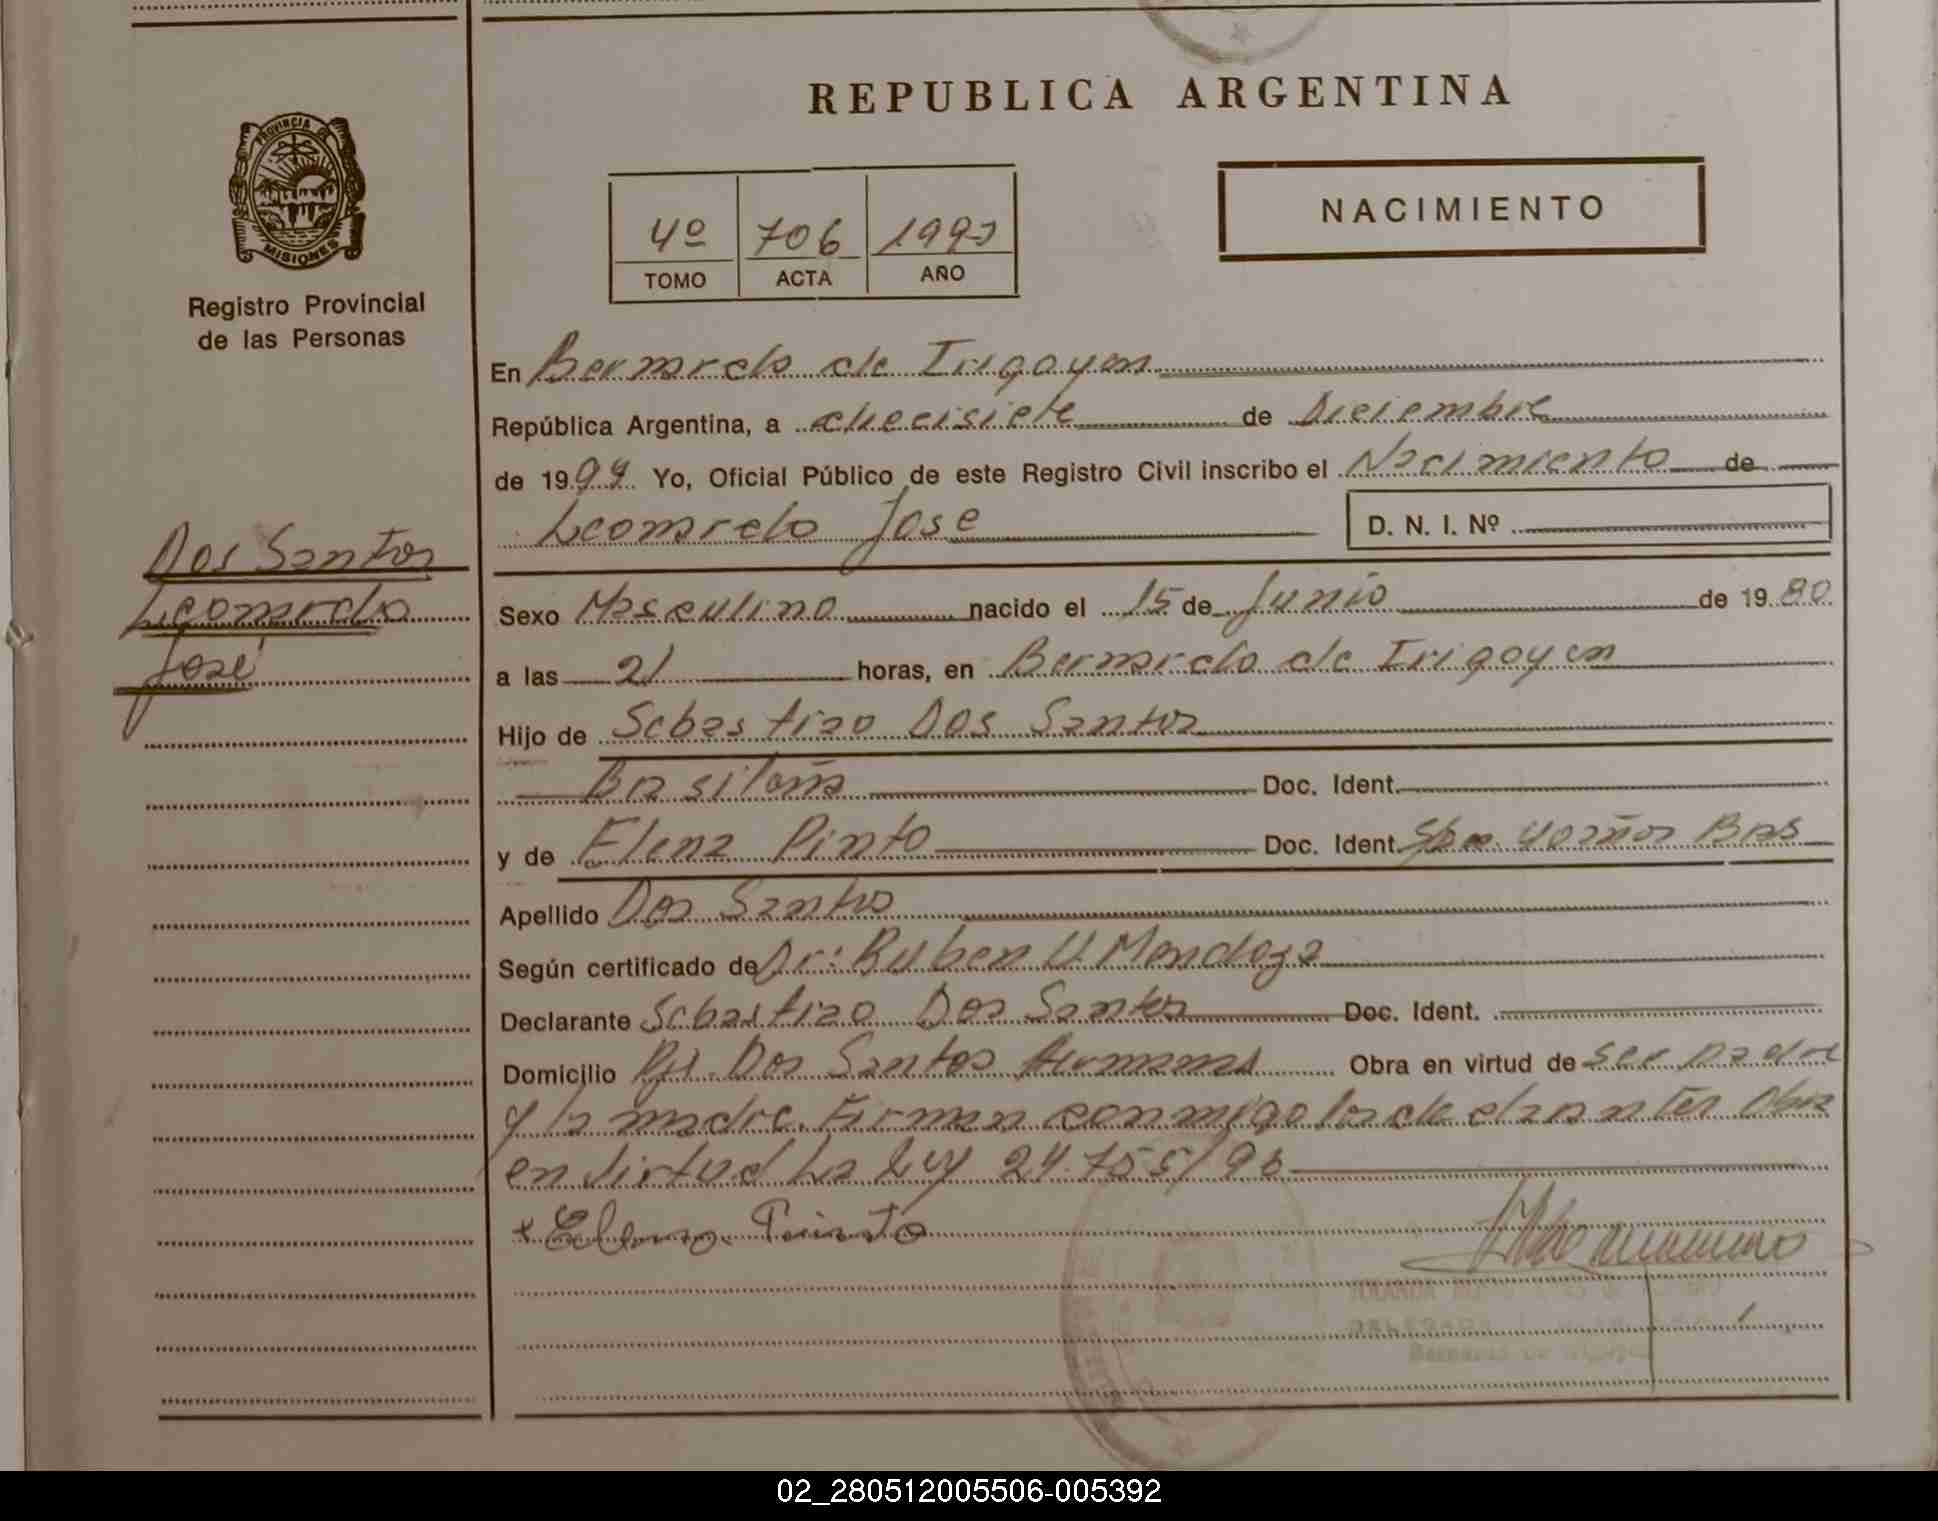 REPUBLICA ARGENTINA
PROVINCIA DE
MISIONES
Registro Provincial
de las Personas
4º 706
TOMO ACTA AÑO
NACIMIENTO
En Bernardo de Irigoyen
República Argentina, a diecisiete de Diciembre
de 1999 Yo, Oficial Público de este Registro Civil inscribo el Nacimiento de
Leonardo Jose D. N. I. Nº
Dos Santos
Leonardo
José
Sexo Masculino nacido el 15 de Junio de 1980
a las 21 horas, en Bernardo de Irigoyen
Hijo de Sebastiao Dos Santos
Brasileña Doc. Ident.
y de Elena Pinto Doc. Ident. Bras
Apellido Dos Santos
Según certificado de Dr: Ruben U. Mendoza
Declarante Sebastiao Dos Santos Doc. Ident.
Domicilio Dos Santos Obra en virtud de ser padre
y la madre. Firman conmigo los declarantes Obra
en virtud La Ley 24.755/98
x Elena Pinto
02_280512005506-005392